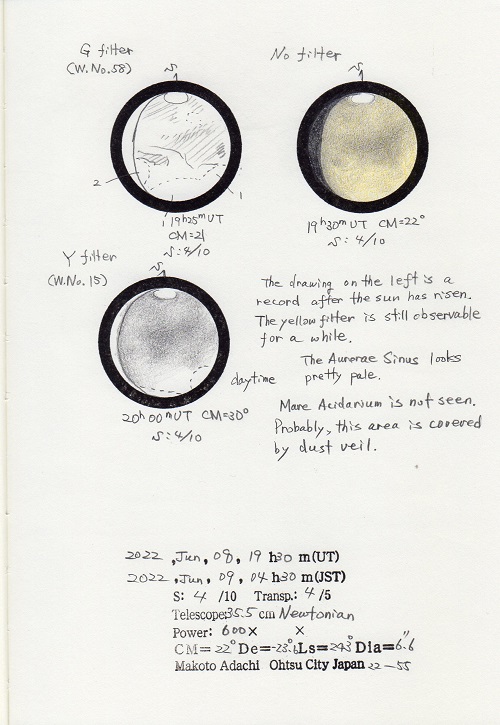 G filter
(W.No.58)
S
2
1
1
19h25mUT
CM=21
S:4/10
No filter
S
19h30mUT CM=22°
S:4/10
Y filter
(W.No.15)
S
daytime
20h00mUT CM=30°
S:4/10
The drawing on the left is a
record after the sun has risen.
The yellow filter is still observable
for a while.
The Aurorae Sinus looks
pretty pale.
Mare Acidarium is not seen.
Probably, this area is covered
by dust veil.
2022, Jun, 08, 19 h30 m(UT)
2022, Jun, 09, 04 h30 m(JST)
S: 4 /10 Transp.: 4 /5
Telescope:35.5 cm Newtonian
Power: 600× ×
CM=22° De=-23.6° Ls=243° Dia=6.6"
Makoto Adachi Ohtsu City Japan 22-55